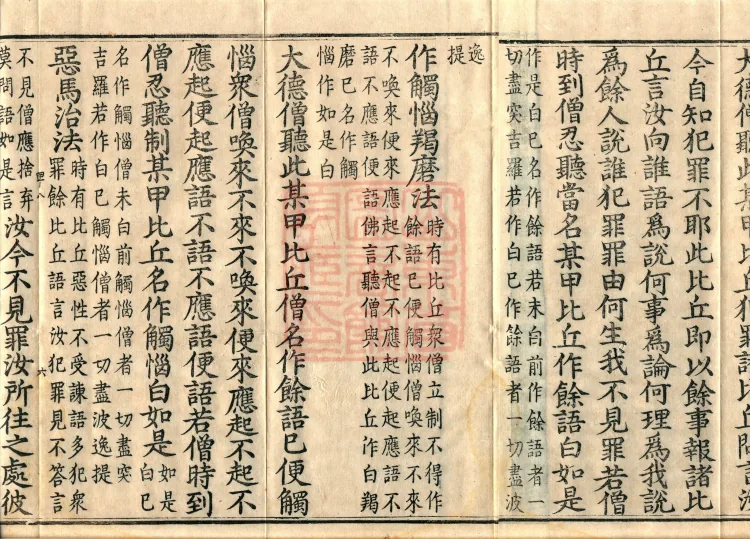 大德僧聽此某甲比丘犯罪諸比丘問言汝
今自知犯罪不耶此比丘即以餘事報諸比
丘言汝向誰語爲說何事爲論何理爲我說
爲餘人說誰犯罪罪由何生我不見罪若僧
時到僧忍聽當名某甲比丘作餘語白如是
作是白已名作餘語若未白前作餘語者一
切盡突吉羅若作白已作餘語者一切盡波
逸
提
作觸惱羯磨法
時有比丘衆僧立制不得作
餘語已便觸惱僧喚來不來
不喚來便來應起不起不應起便起應語不
語不應語便語佛言聽僧與此比丘作白羯
磨已名作觸
惱作如是白
大德僧聽此某甲比丘僧名作餘語已便觸
惱衆僧喚來不來不喚來便來應起不起不
應起便起應語不語不應語便語若僧時到
僧忍聽制某甲比丘名作觸惱白如是
如是
白已
名作觸惱僧未白前觸惱僧者一切盡突
吉羅若作白已觸惱僧者一切盡波逸提
惡馬治法
時有比丘惡性不受諫語多犯衆
罪餘比丘語言汝犯罪見不答言
不見僧應捨棄
莫問語如是言
汝今不見罪汝所往之處彼